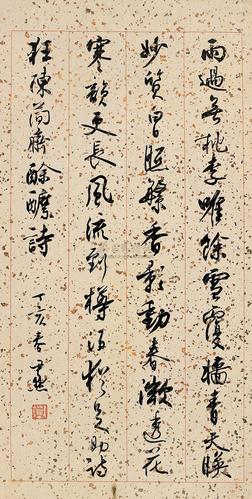 雨過無桃李唯餘雪覆牆青天暎
妙質白日照繁香影動春微透花
寒韻更長風流到樽酒猶足助詩
狂陳簡齋酴醾詩 丁亥春尹默